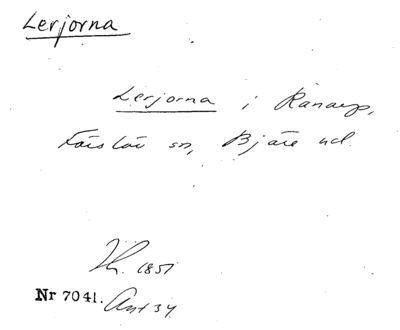 Lerjorna
Lerjorna i Ranarp,
Förslöv sn, Bjäre hd.
1851
Nr 7041. Ant 34